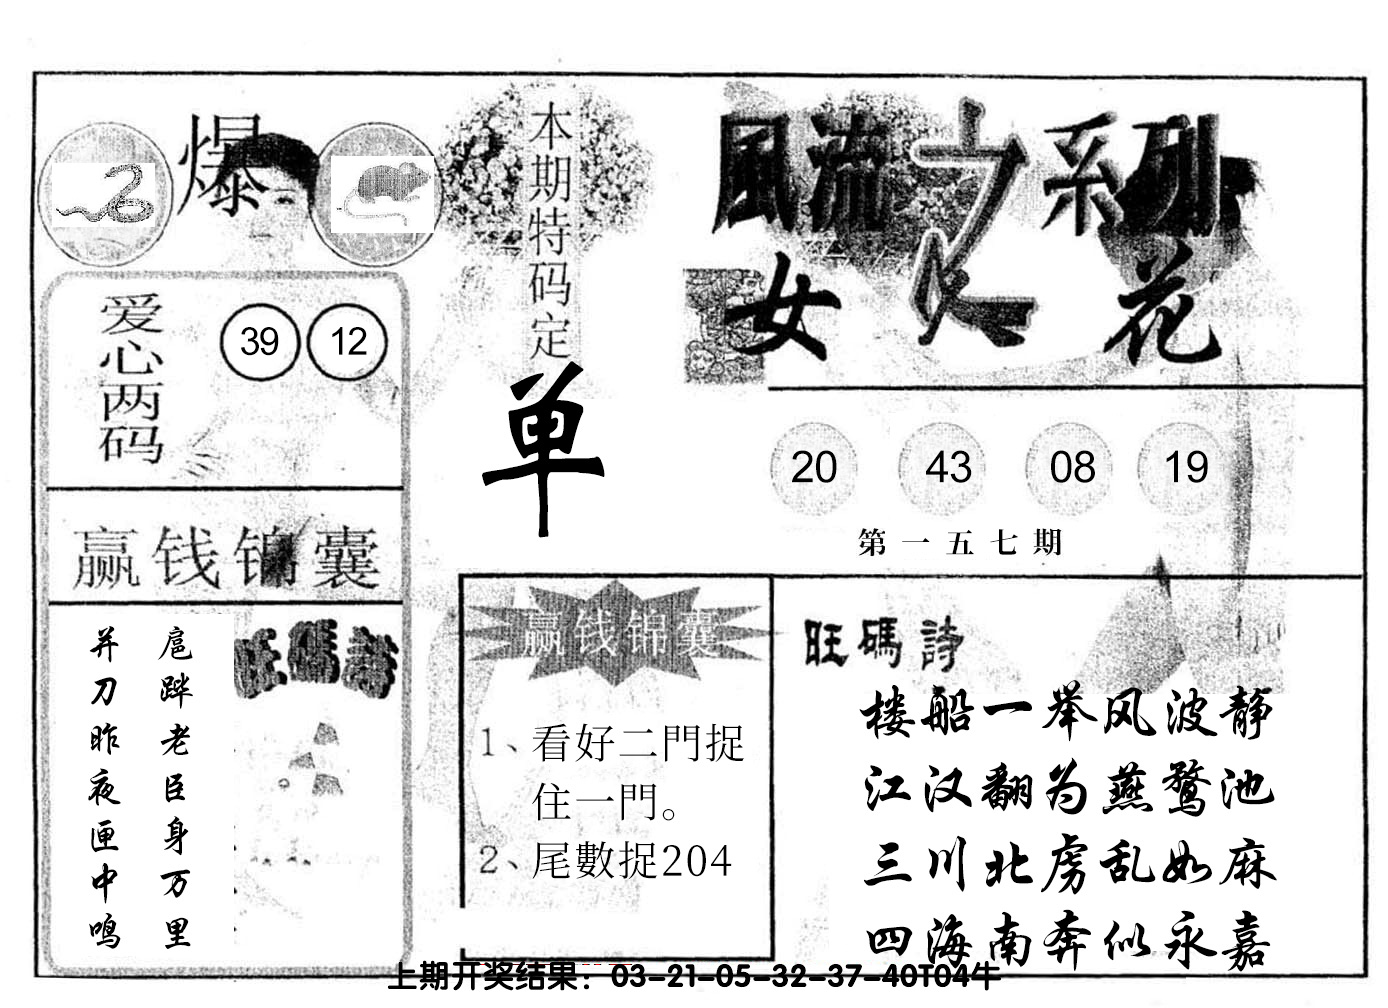 爆
本期特码定
单
風流之系列
女人花
爱心两码
39 12
20 43 08 19
第一五七期
赢钱锦囊
扈跸老臣身万里
并刀昨夜匣中鸣
旺碼詩
赢钱锦囊
1、看好二門捉
住一門。
2、尾數捉204
旺碼詩
楼船一举风波静
江汉翻为燕鹜池
三川北虏乱如麻
四海南奔似永嘉
上期开奖结果：03-21-05-32-37-40T04牛